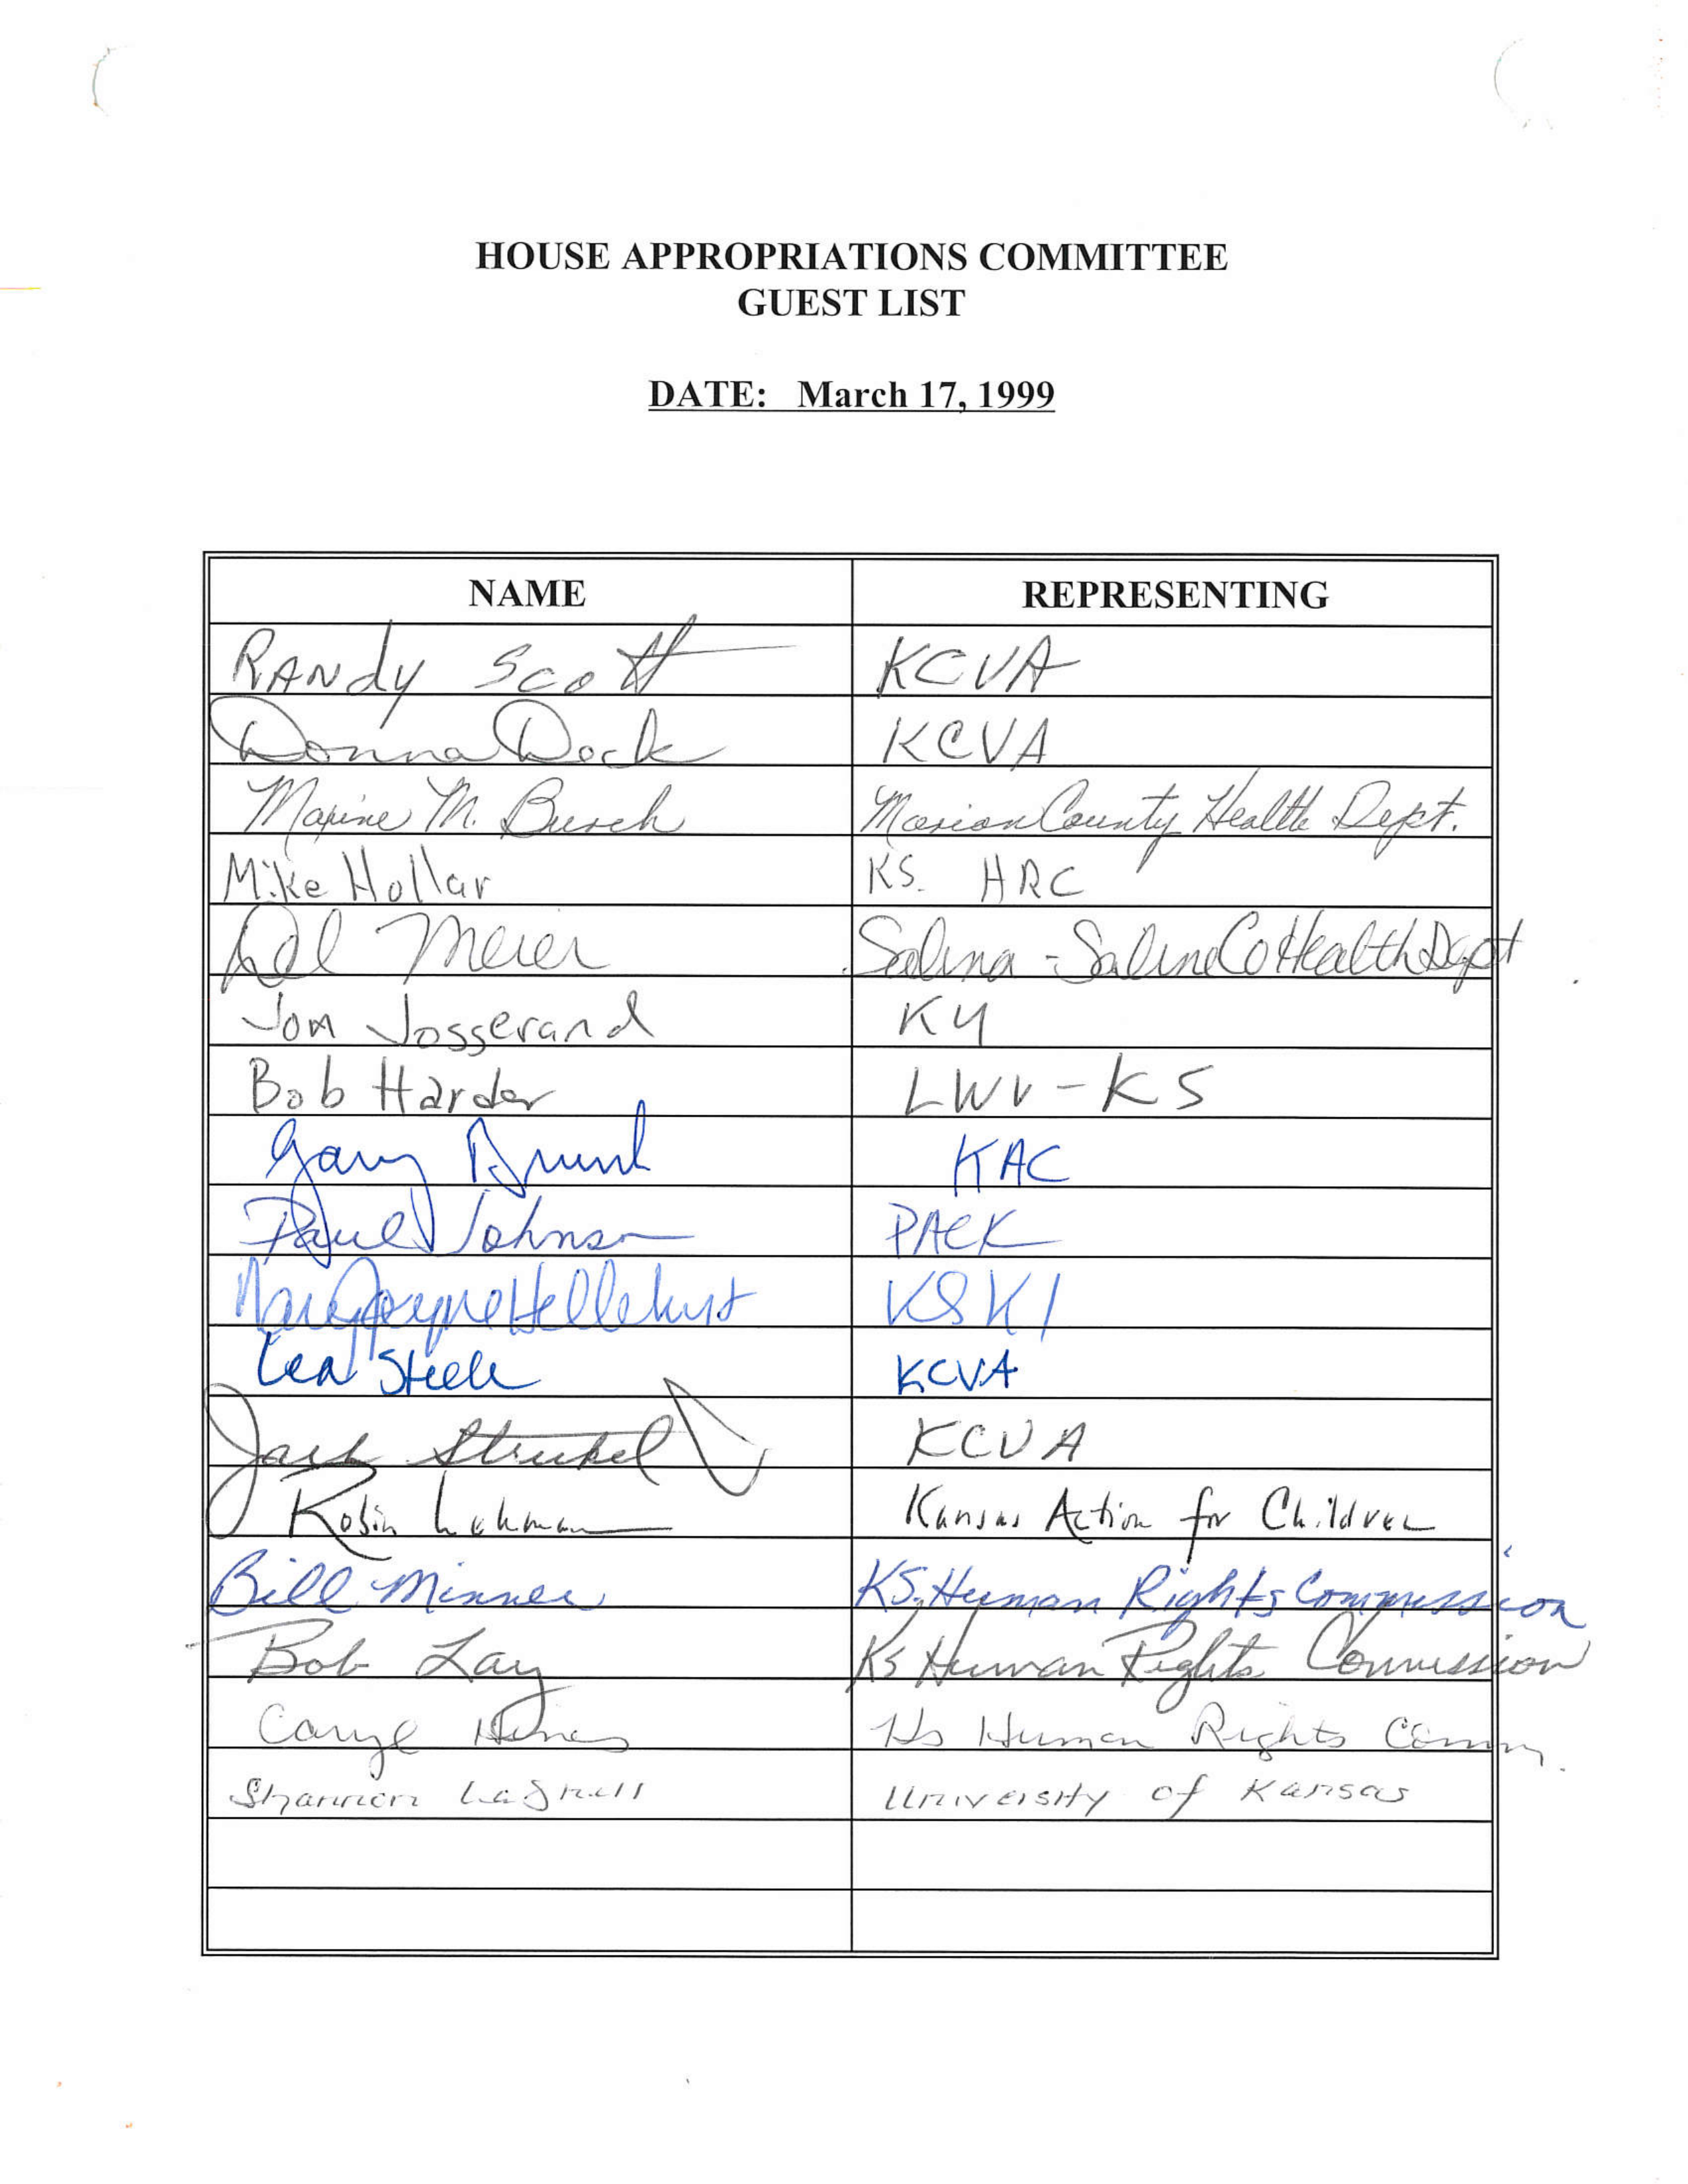 HOUSE APPROPRIATIONS COMMITTEE
GUEST LIST
DATE: March 17, 1999
NAME REPRESENTING
RANdy Scott KCVA
Donna Dock KCVA
Maxine M. Burch Marion County Health Dept.
Mike Hollar KS. HRC
Del Meier Salina - Saline Co Health Dept
Jon Josserand KU
Bob Harder LWV-KS
Gary KAC
Paul Johnson PACK
KSKI
Steele KCVA
Jack KCVA
Robin Lehman Kansas Action for Children
Bill Minner KS. Human Rights Commission
Bob Lay Ks Human Rights Commission
Caryl Hines Ks Human Rights Comm.
Shannon University of Kansas